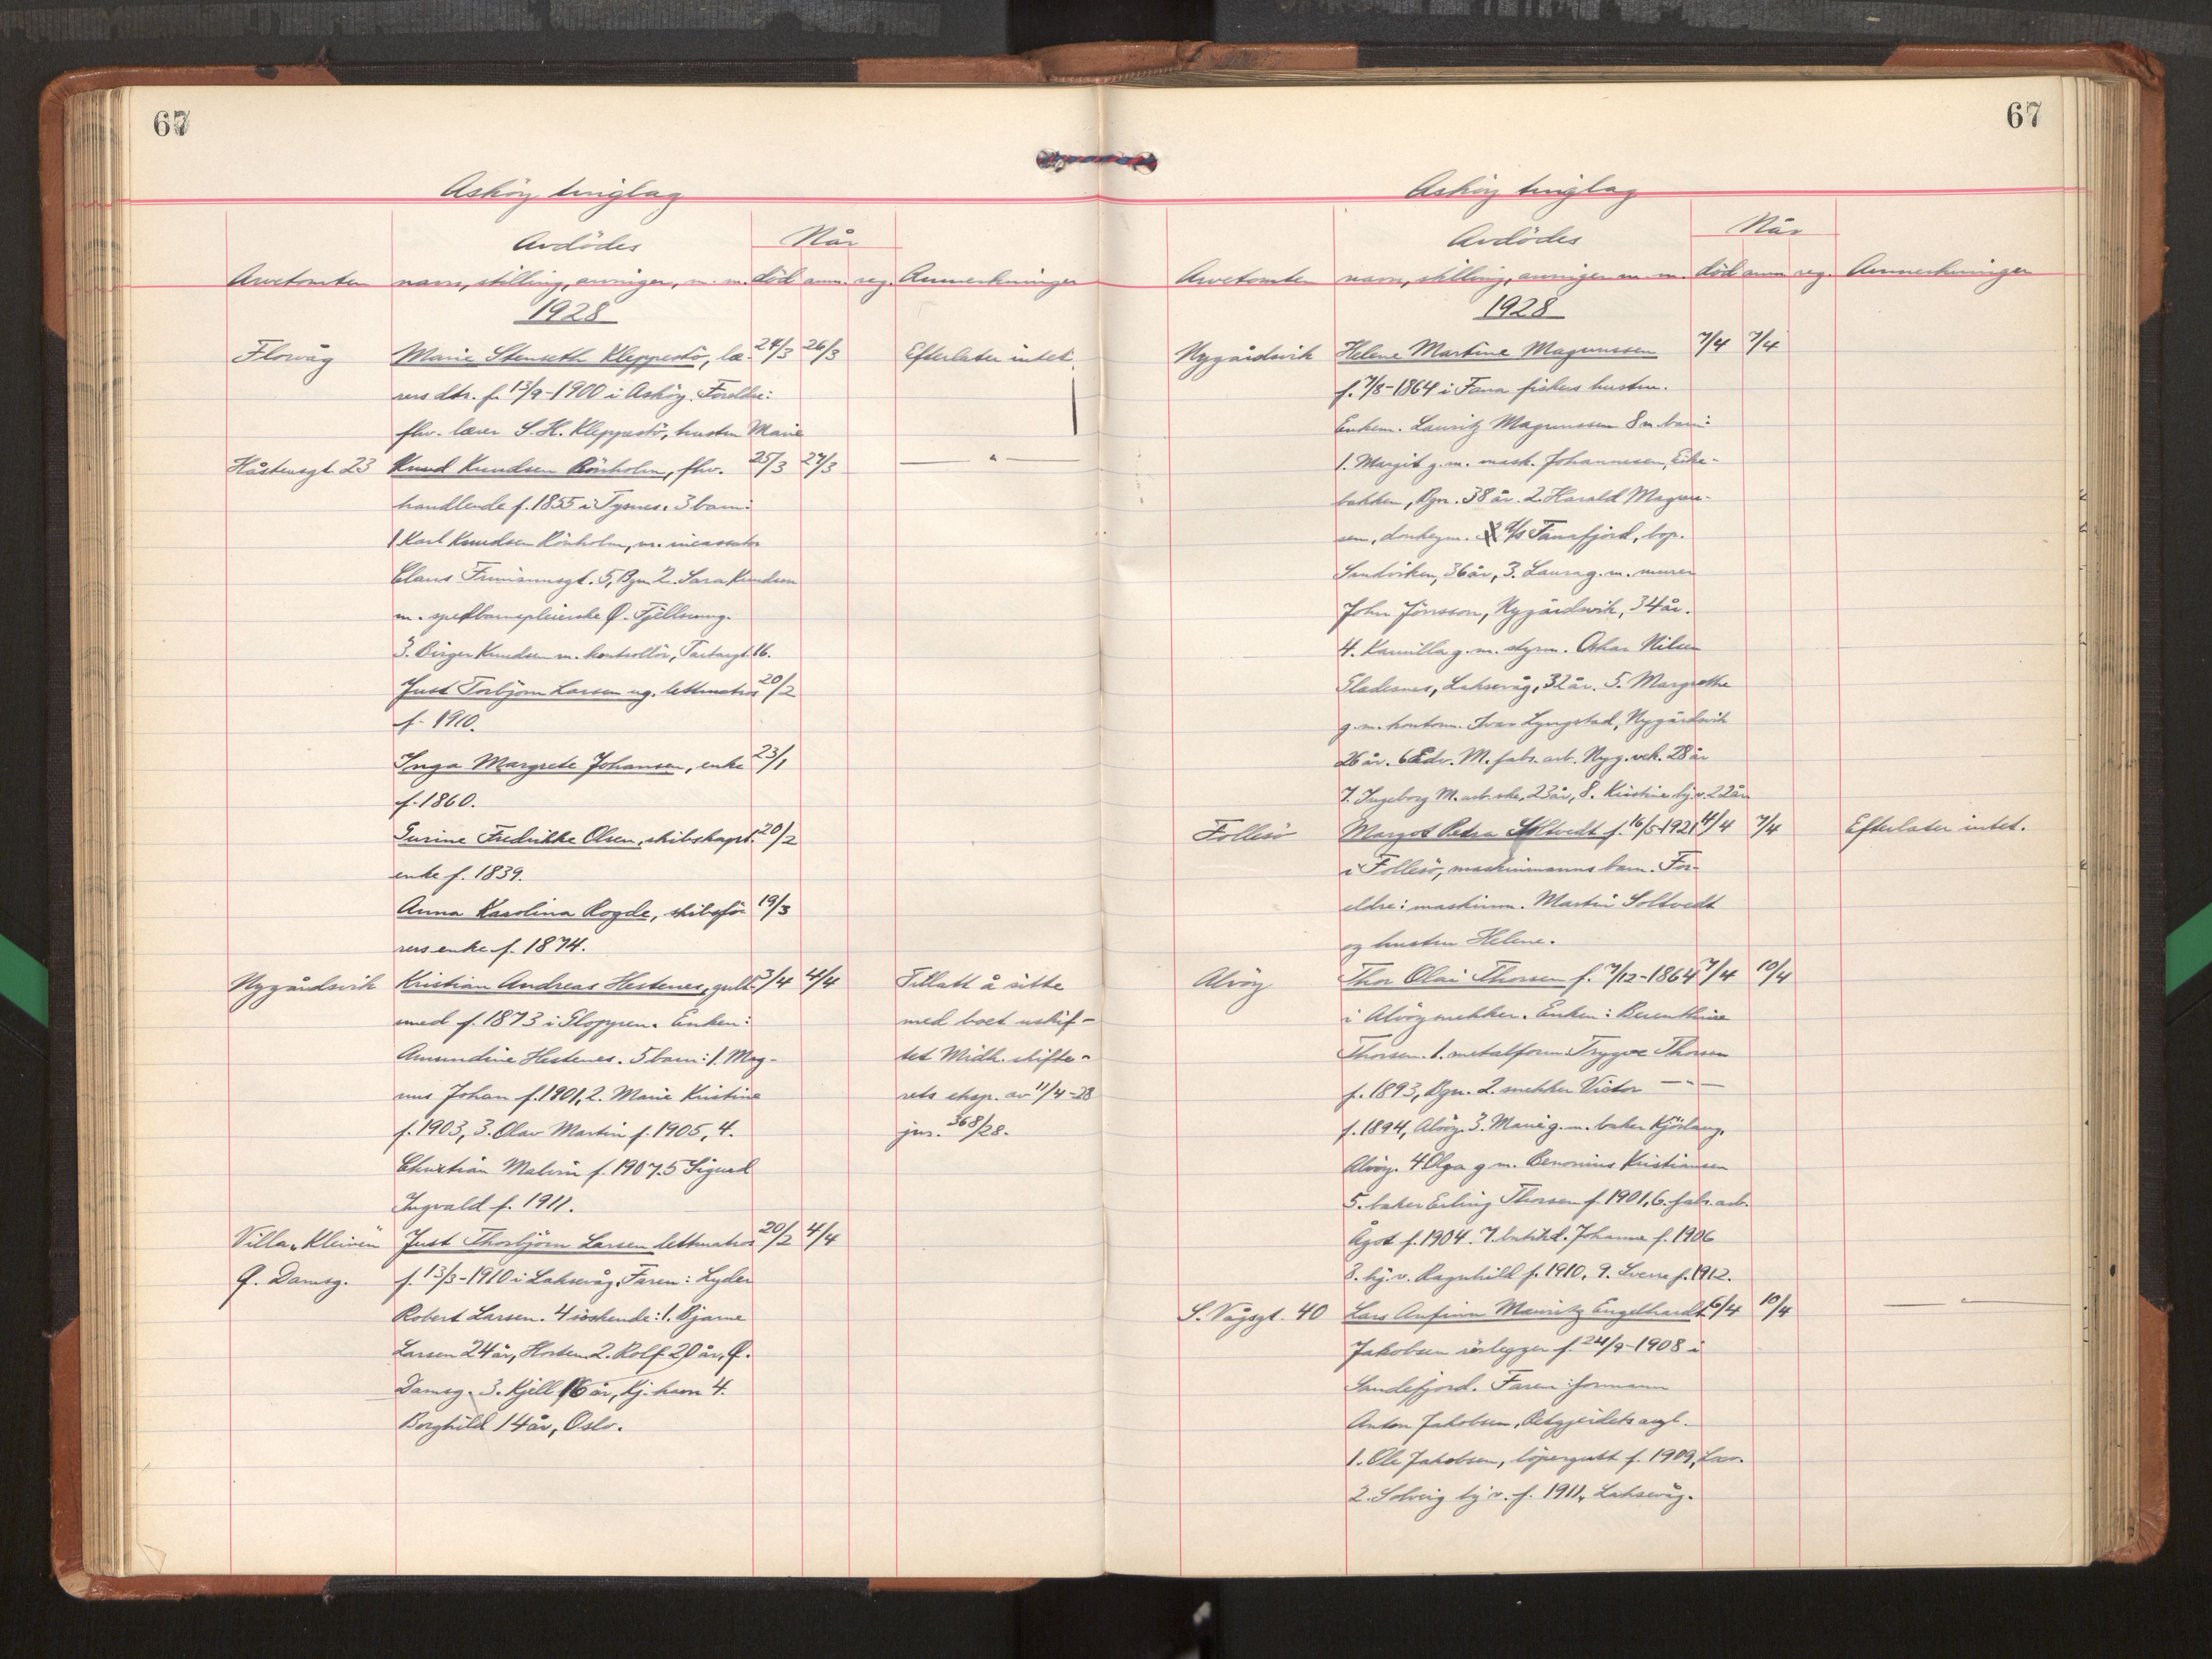 67
Asköy tinglag
Avdödes
Når
Arvetomten navn, stilling, arvinger, m. m. död anm. reg. Anmerkninger
1928
Florvåg Marie Stenseth Kleppestö, læ- 24/3 26/3 Efterlater intet.
rers dtr. f. 13/9-1900 i Asköy. Foreldre:
fhv. lærer S. H. Kleppestö, hustru Marie
Håstensgt. 23 Knud Knudsen Rönholm, fhv. 25/3 27/3 — " —
handlende f. 1855 i Tysnes. 3 barn:
1 Karl Knudsen Rönholm, m. incassator
Claus Frimannsgt. 5, Bgn 2. Sara Knudsen
m. spedbarnspleierske Ö. Fjellsmug.
3. Birger Knudsen m. kontrollör, 16.
Just Torbjörn Larsen ug. lettmatros 20/2
f. 1910.
Inga Margrete Johansen, enke 23/1
f. 1860.
Gurine Fredrikke Olsen, skibskapt. 20/2
enke f. 1839.
Anna Karolina Rogde, skibsfö- 19/3
rers enke f. 1874.
Nygårdsvik Kristian Andreas Hestenes, gull- 3/4 4/4 Tillatt å sitte
smed f. 1873 i Gloppen. Enken: med boet uskif-
Amundine Hestenes. 5 barn: 1. Mag- tet Midh. skifte-
nus Johan f. 1901, 2. Marie Kristine rets eksp. av 11/4-28
f. 1903, 3. Olav Martin f. 1905, 4. jnr. 368/28.
Christian Malvin f. 1907. 5 Sigurd
Ingvald f. 1911.
Villa Kleiven Just Thorbjörn Larsen lettmatros 20/2 4/4
Ö. Damsg. f. 13/3-1910 i Laksevåg. Faren: Lyder
Robert Larsen. 4 söskende: 1. Bjarne
Larsen 24 år, Horten. 2. Rolf 20 år, Ö.
Damsg. 3. Kjell 16 år, Kj. havn 4.
Borghild 14 år, Oslo.
67
Asköy tinglag
Avdödes
Når
Arvetomten navn, stilling, arvinger m. m. död anm reg. Anmerkninger
1928
Nygårdsvik Helene Martine Magnussen 7/4 7/4
f. 7/8-1864 i Fana fiskers hustru.
Enkem. Lauritz Magnussen 8 m. barn:
1. Margit g. m. mask. Johannesen, Eike-
bakken, Bgn. 38 år. 2. Harald Magnu-
sen, donkeym. D/S Tanafjord, bop.
Sandviken, 36 år, 3. Laura g. m. murer
John Jönsson, Nygårdsvik, 34 år.
4. Kamilla g. m. styrm. Oskar Nilsen
Gladesnes, Laksevåg, 32 år. 5. Margrethe
g. m. kontorm. Ivar Lyngstad, Nygårdsvik
26 år. 6 Edv. M. fabr. arb. Nyg. vik. 28 år
7. Ingeborg M. arb.ske, 23 år, 8. Kristine hj. v. 22 år
Follesö Margot Petra Soltvedt f. 16/5-1921 4/4 7/4 Efterlater intet.
i Follesö, maskinmanns barn. For-
eldre: maskinm. Martin Soltvedt
og hustru Helene.
Alvöy Thor Olai Thorsen f. 7/12-1864 7/4 10/4
i Alvöy mekker. Enken: Berenthine
Thorsen. 1. metalform. Trygve Thorsen
f. 1893, Bgn. 2. mekker Victor — " —
f. 1894, Alvöy. 3. Marie g. m. baker Kjörlaug,
Alvöy. 4 Olga g m. Benonius Kristiansen
5. baker Erling Thorsen f. 1901, 6. fabr. arb.
Ågot f. 1904. 7. butikd. Johanna f. 1906
8. hj. v. Ragnhild f. 1910. 9. Sverre f. 1912.
S. Vågsgt. 40 Lars Anfinn Mauritz Engelhardt 6/4 10/4 — " —
Jakobsen rörlegger f. 24/9-1908 i
Sandefjord. Faren: formann
Anton Jakobsen,
1. Ole Jakobsen, löpergutt f. 1909, Lax.
2. Solveig hj v. f. 1911, Laksevåg.